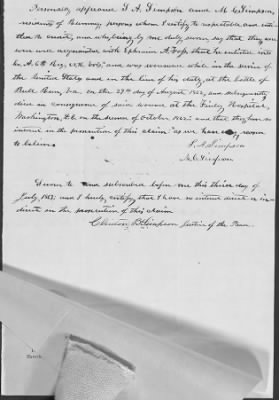 Personally appeared S. A. Simpson and M. C. Simpson,
residing at persons whom I certify to respectable, and entitled
to credit, and who, being by me duly sworn say that they are
were well acquainted with Ephraim A. that he enlisted into
Co. A. 6th Reg. and was wounded while in the service of
the United States and in the line of his duty, at the battle of
Bull Run, Va. on the 29th day of August 1862, and subsequently
died in consequence of said wound at the Finley Hospital,
Washington D.C. on the of October 1862; and that they have no
interest in the prosecution of this claim as we have reason
to believe.
S. A. Simpson
M. C. Simpson
Sworn to and subscribed before me this third day of
July, 1863; and I hereby certify that I have no interest direct or in-
direct in the prosecution of this claim
Simpson Justice of the Peace.